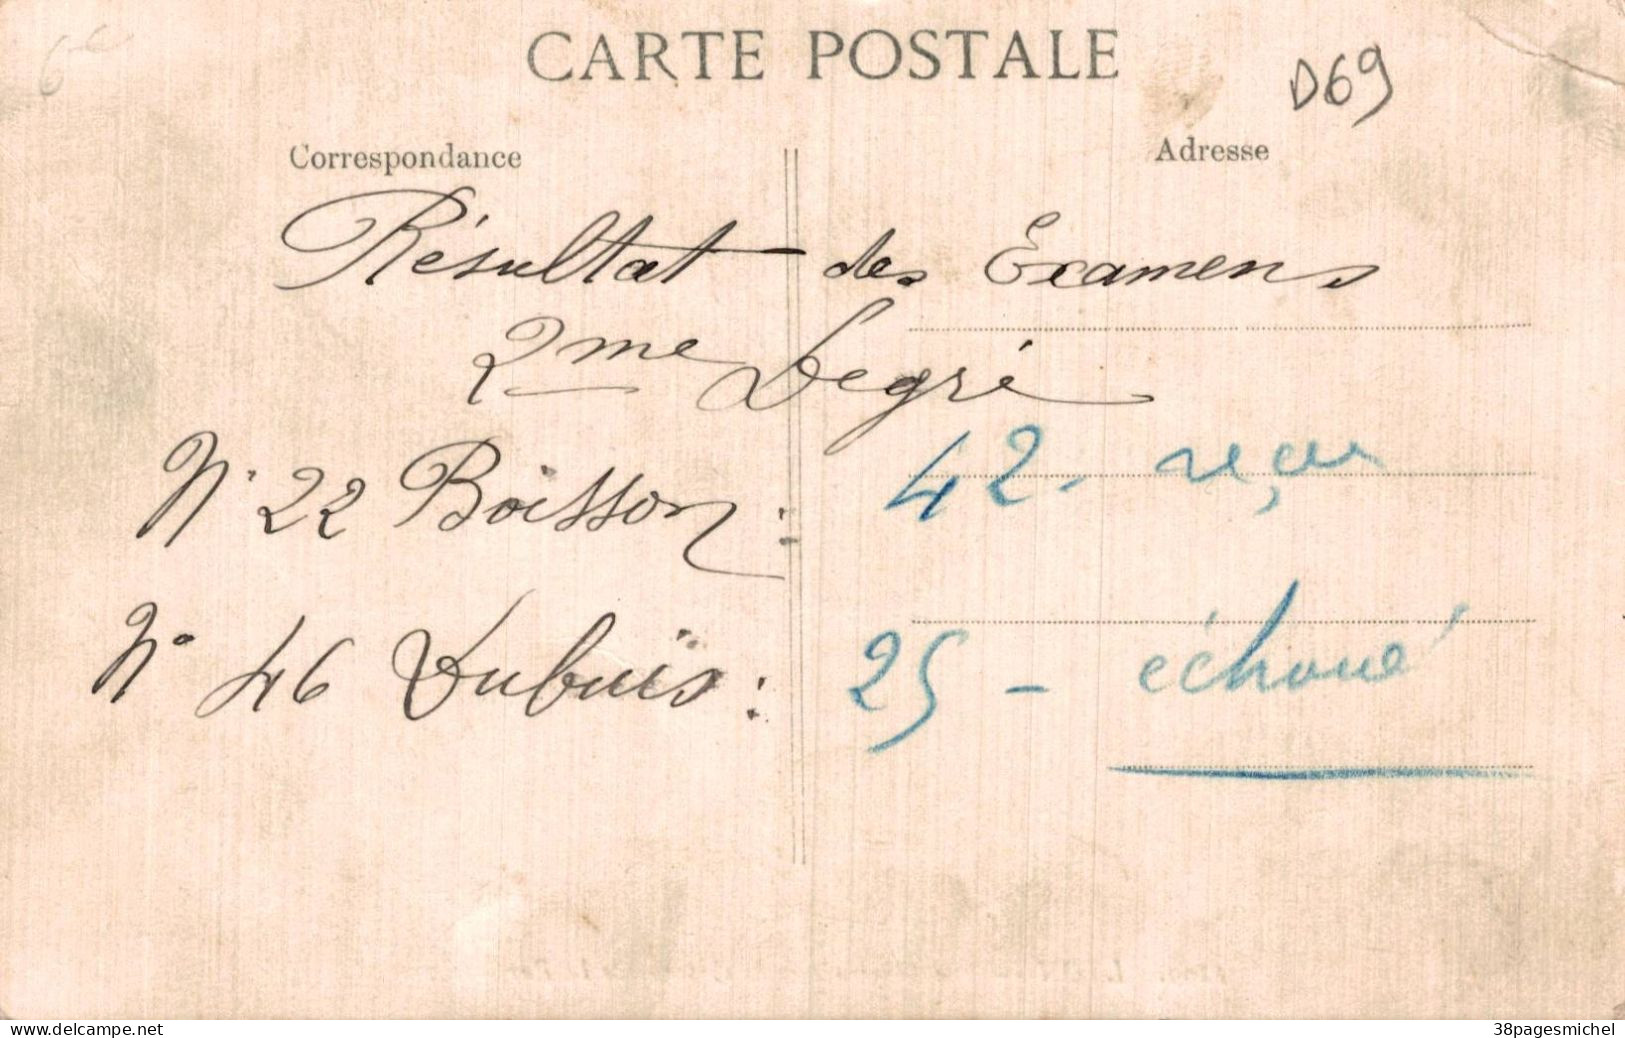 6€
CARTE POSTALE
D69
Correspondance
Adresse
Résultat des Examens
2me Degré
N° 22 Boisson : 42 - reçu
N° 46 Dubuis : 25 - échoué
www.delcampe.net
38pagesmichel